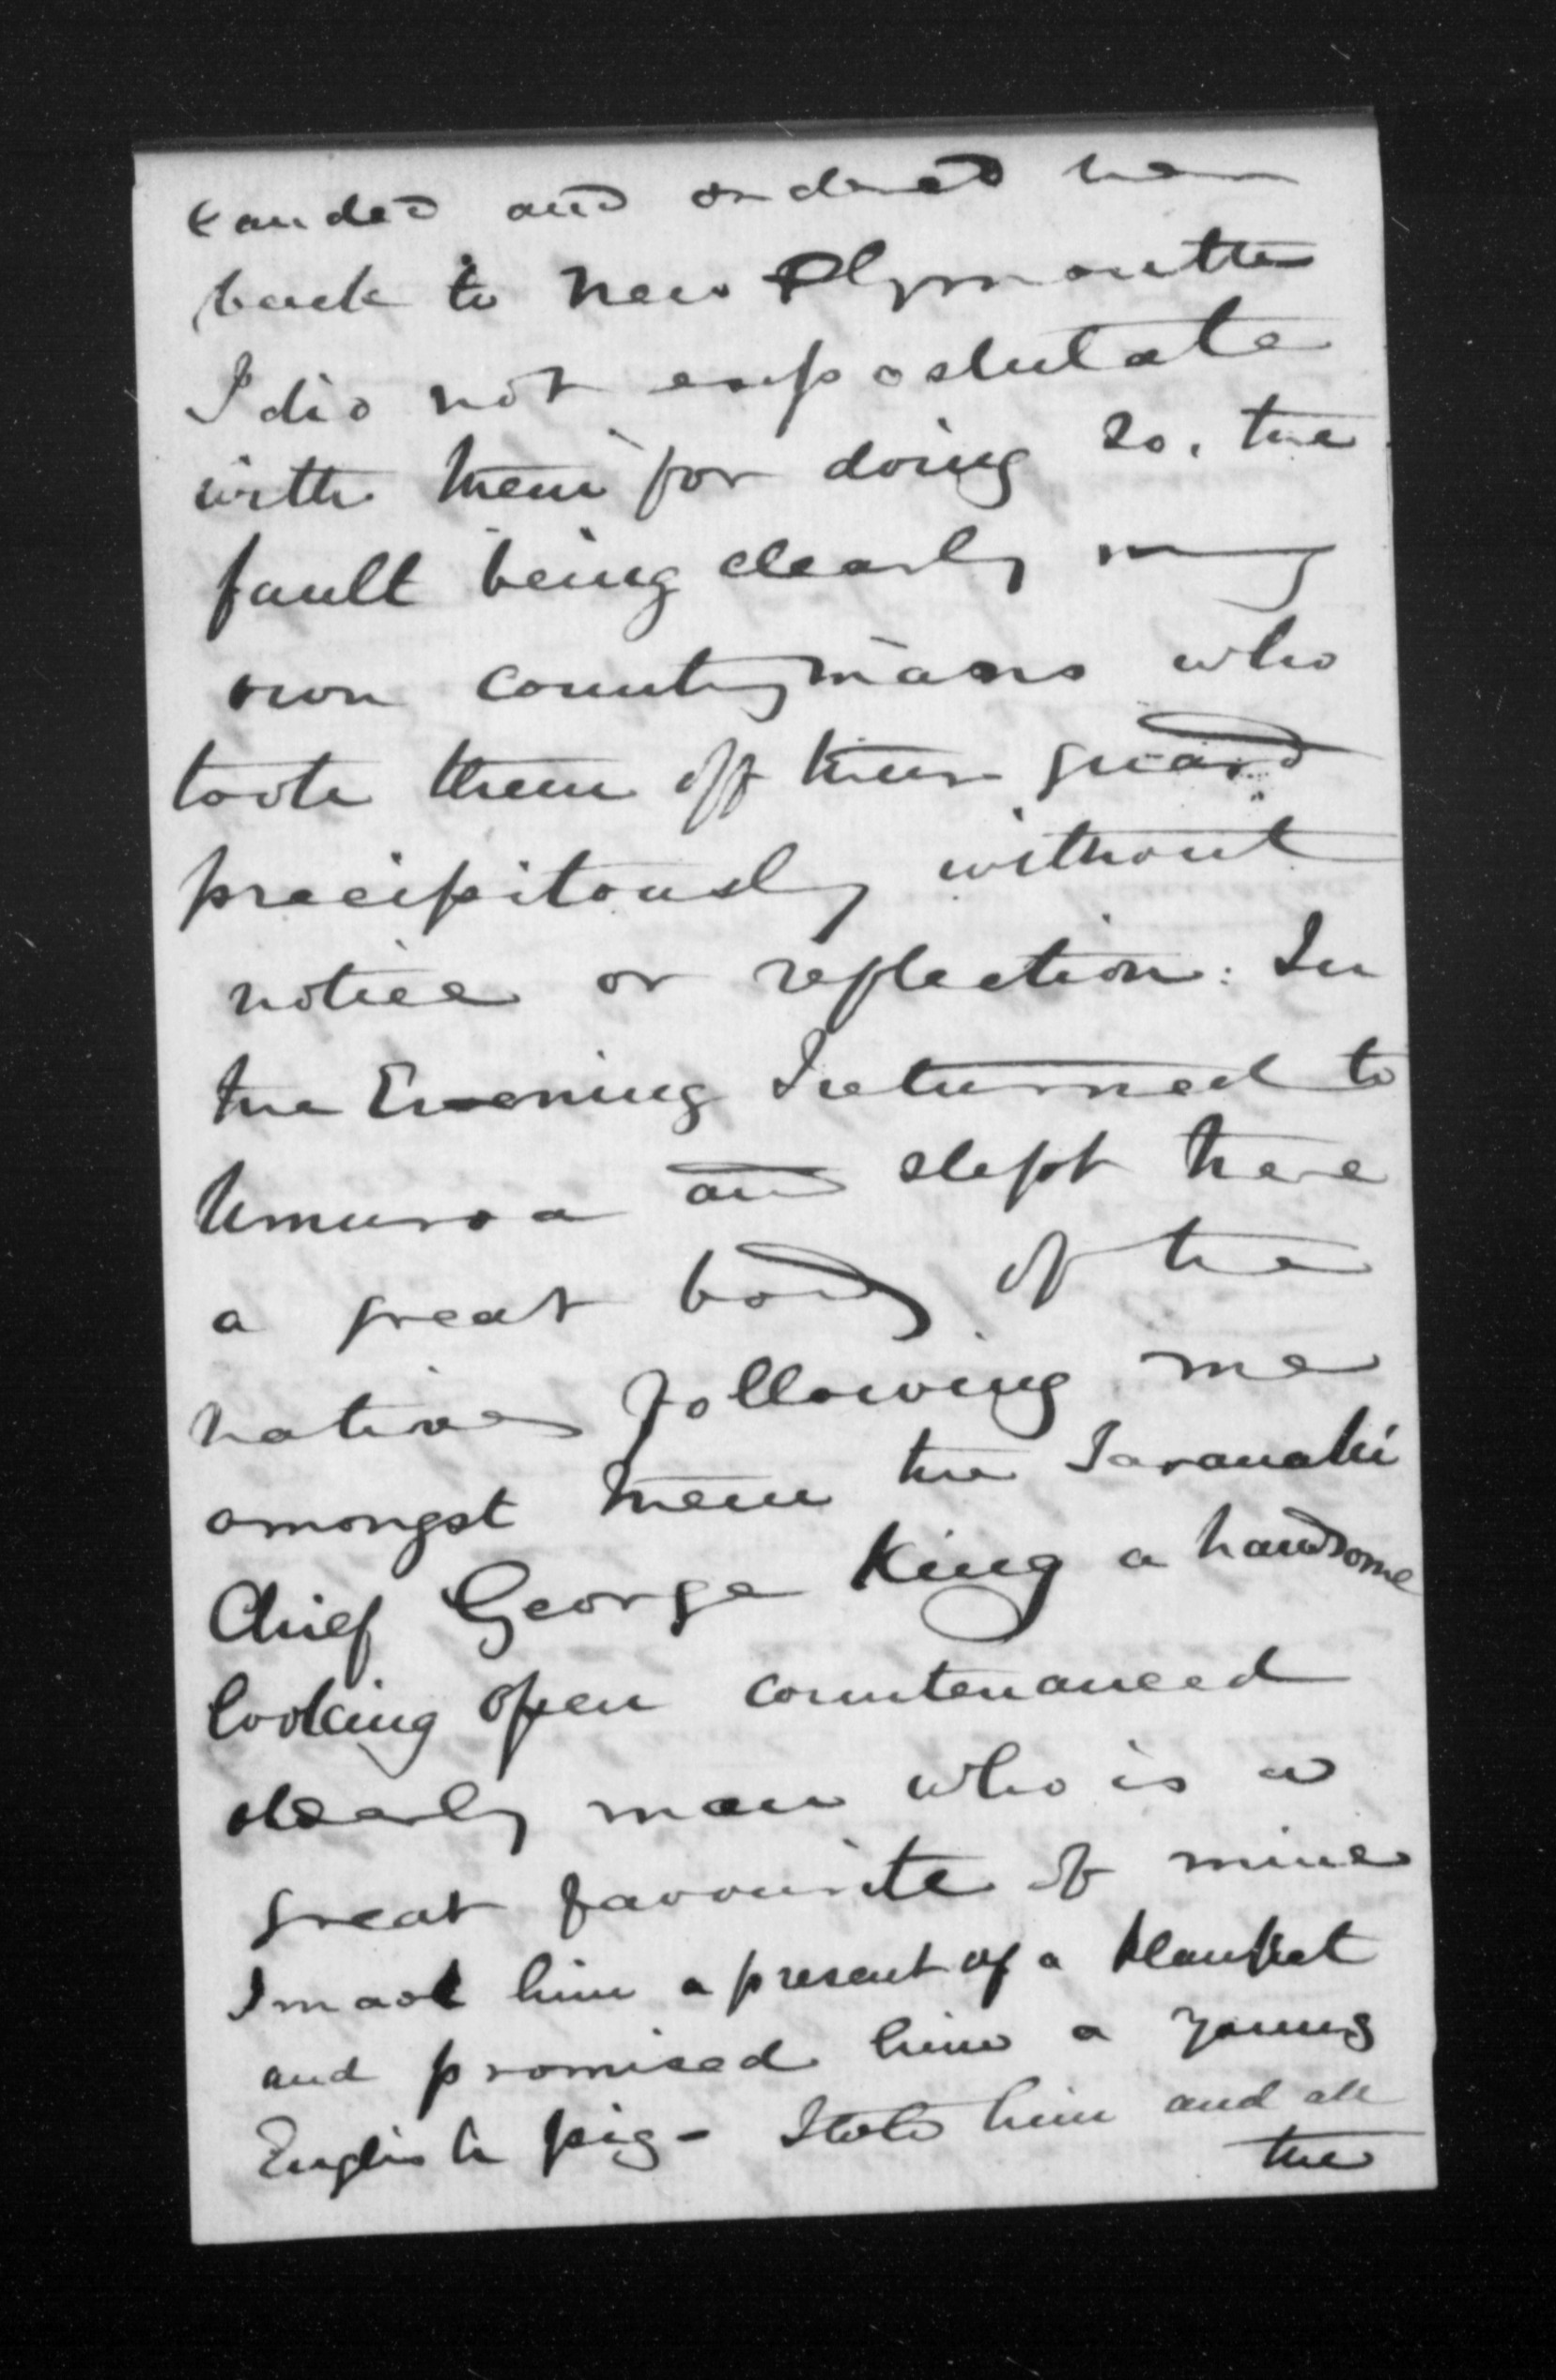 landed and ordered her
back to New Plymouth
I did not expostulate
with them for doing so, the
fault being clearly my
own countrymans who
took them off their guard
precipitously without
notice or reflection: In
the Evening I returned to
Umuroa and slept there
a great body of the
natives following me
amongst them the Taranaki
Chief George King a handsome
looking open countenanced
elderly man who is a
great favourite of mine
I made him a present of a blanket
and promised him a young
English pig - I told him and all
the